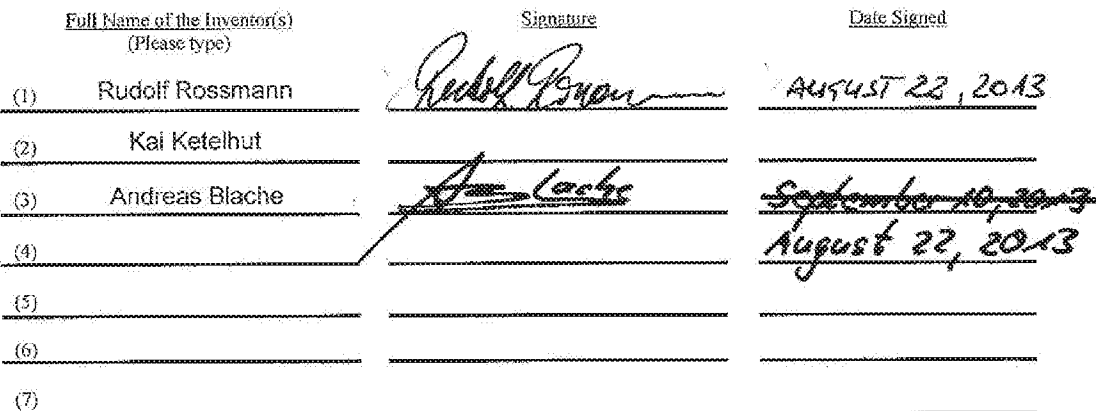 Full Name of the Inventor(s) Signature Date Signed
(Please type)
(1) Rudolf Rossmann Rudolf AUGUST 22, 2013
(2) Kai Ketelhut
(3) Andreas Blache September 10, 2013
(4) August 22, 2013
(5)
(6)
(7)